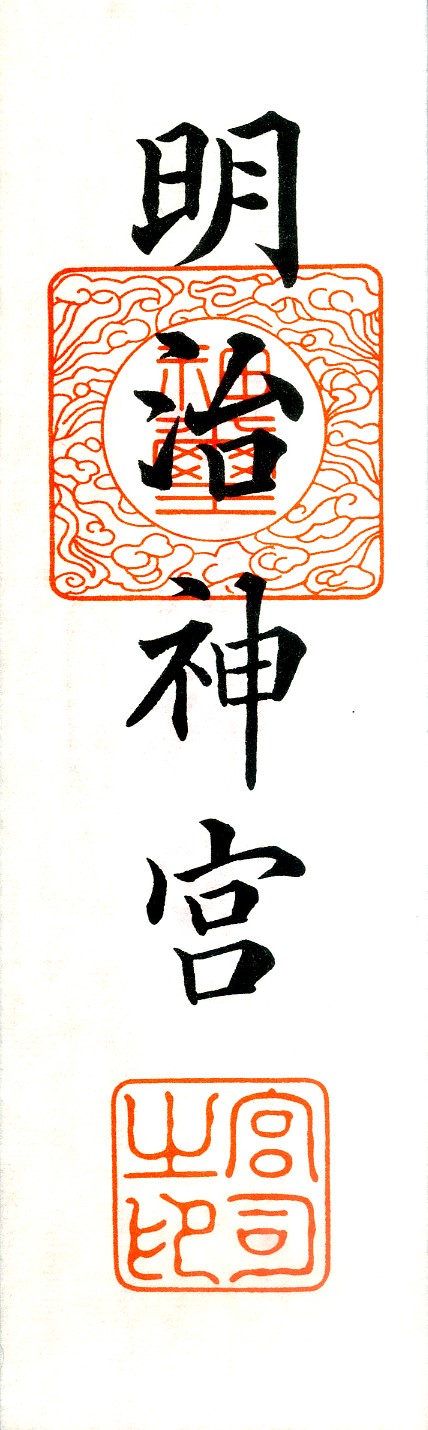 明治神宮
神璽
宮司
之印